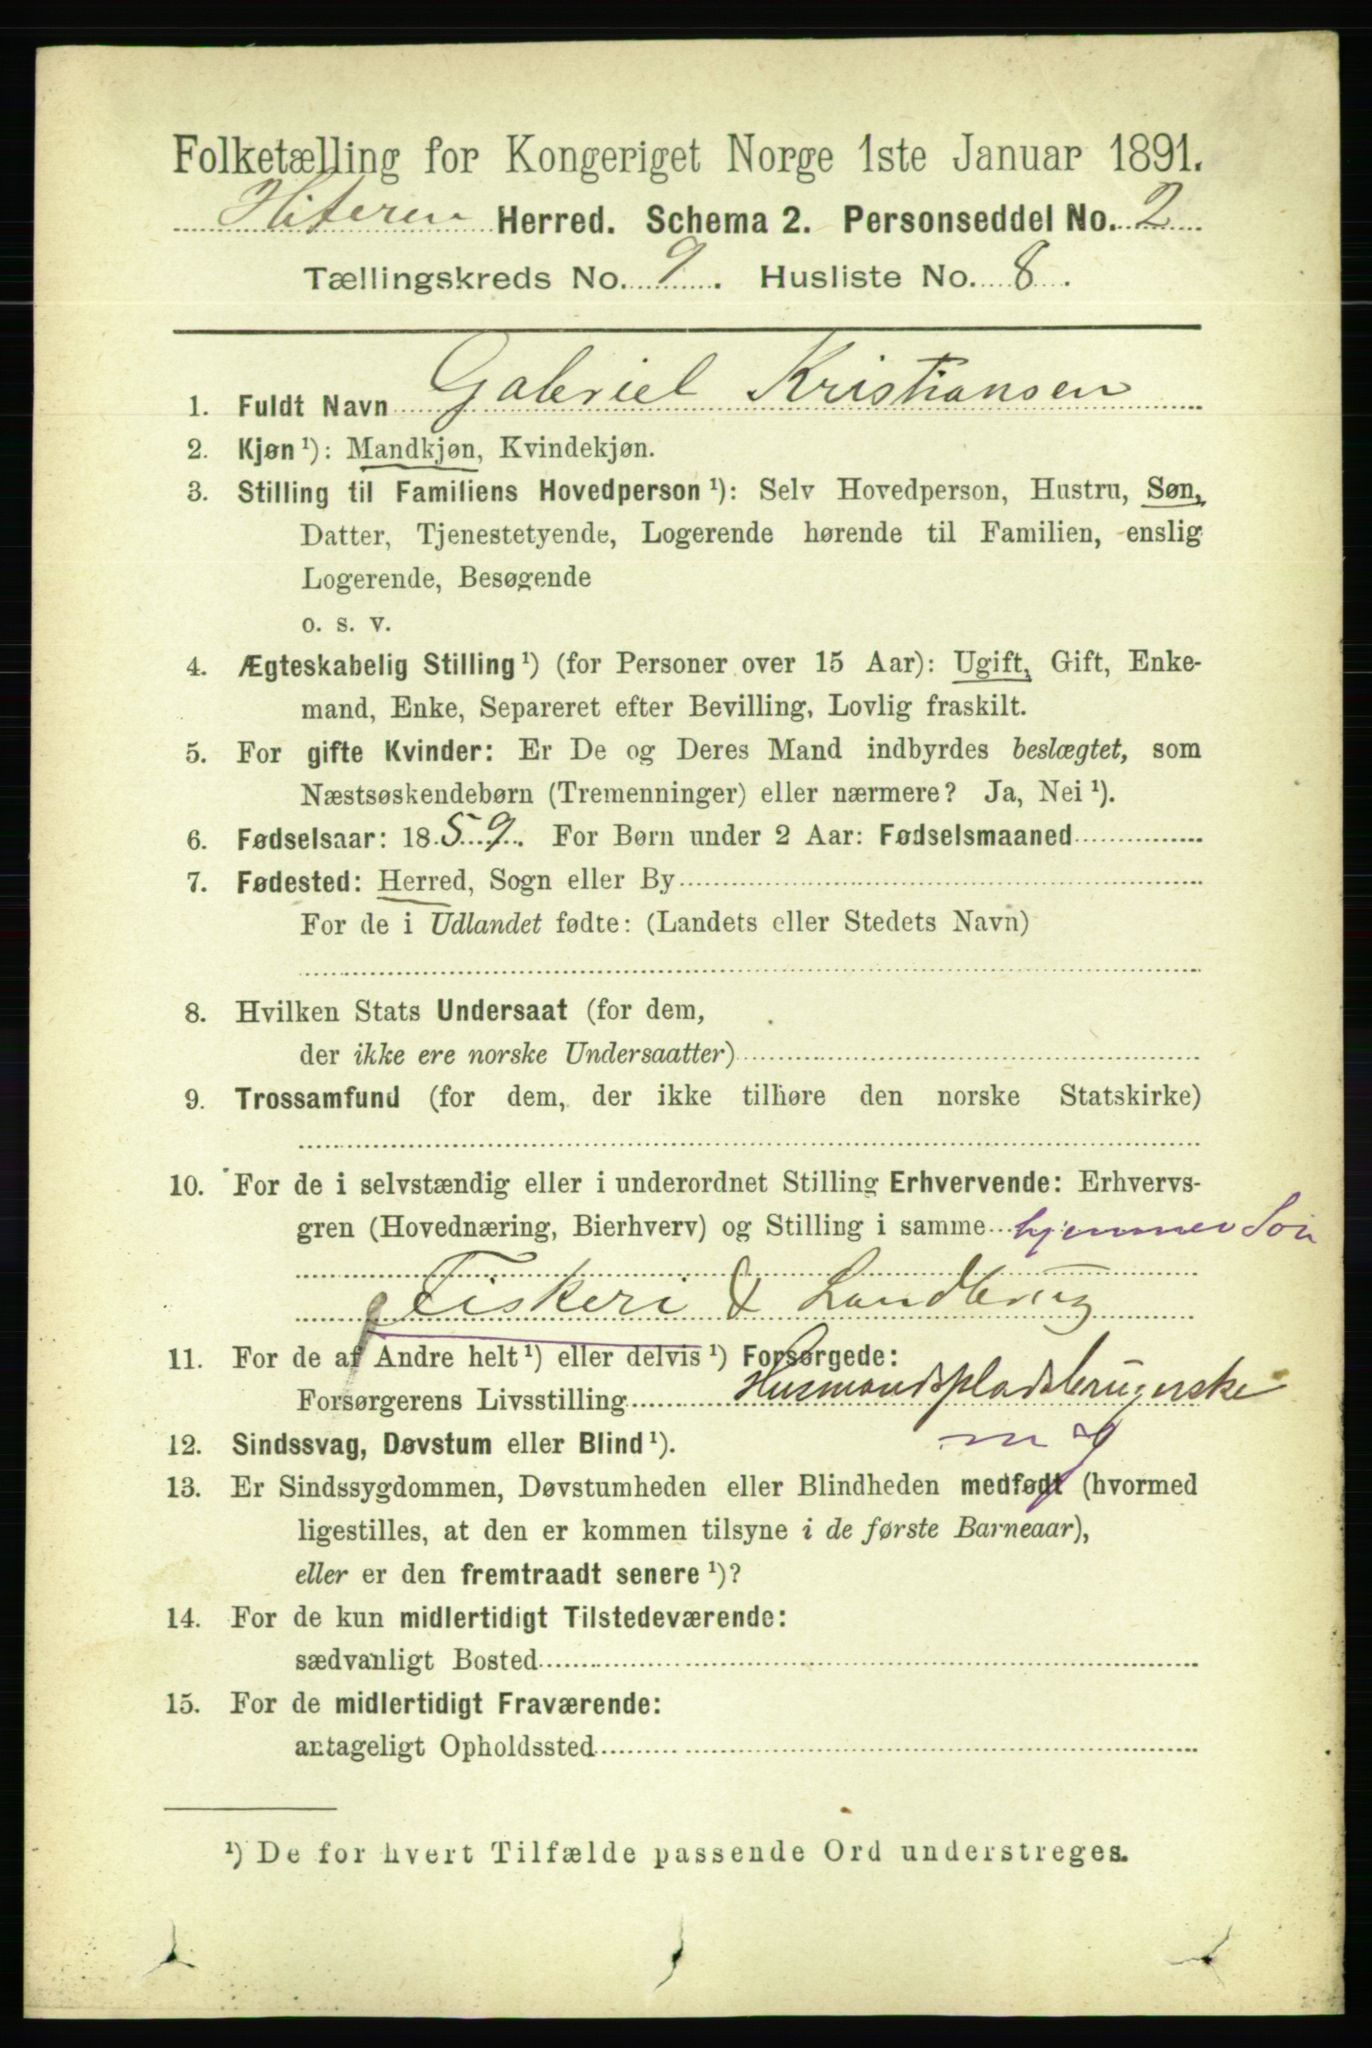 Folketælling for Kongeriget Norge 1ste Januar 1891.
Hiteren Herred. Schema 2. Personseddel No. 2
Tællingskreds No. 9. Husliste No. 8.
1. Fuldt Navn Gabriel Kristiansen
2. Kjøn ¹): Mandkjøn, Kvindekjøn.
3. Stilling til Familiens Hovedperson ¹): Selv Hovedperson, Hustru, Søn,
Datter, Tjenestetyende, Logerende hørende til Familien, enslig
Logerende, Besøgende
o. s. v.
4. Ægteskabelig Stilling ¹) (for Personer over 15 Aar): Ugift, Gift, Enke-
mand, Enke, Separeret efter Bevilling, Lovlig fraskilt.
5. For gifte Kvinder: Er De og Deres Mand indbyrdes beslægtet, som
Næstsøskendebørn (Tremenninger) eller nærmere? Ja, Nei ¹).
6. Fødselsaar: 1859. For Børn under 2 Aar: Fødselsmaaned
7. Fødested: Herred, Sogn eller By
For de i Udlandet fødte: (Landets eller Stedets Navn)
8. Hvilken Stats Undersaat (for dem,
der ikke ere norske Undersaatter)
9. Trossamfund (for dem, der ikke tilhøre den norske Statskirke)
10. For de i selvstændig eller i underordnet Stilling Erhvervende: Erhvervs-
gren (Hovednæring, Bierhverv) og Stilling i samme hjemmev Søn
Fiskeri & Landbrug
11. For de af Andre helt ¹) eller delvis ¹) Forsørgede:
Forsørgerens Livsstilling Husmandspladsbrugerske
12. Sindssvag, Døvstum eller Blind ¹).
13. Er Sindssygdommen, Døvstumheden eller Blindheden medfødt (hvormed
ligestilles, at den er kommen tilsyne i de første Barneaar),
eller er den fremtraadt senere ¹)?
14. For de kun midlertidigt Tilstedeværende:
sædvanligt Bosted
15. For de midlertidigt Fraværende:
antageligt Opholdssted
¹) De for hvert Tilfælde passende Ord understreges.